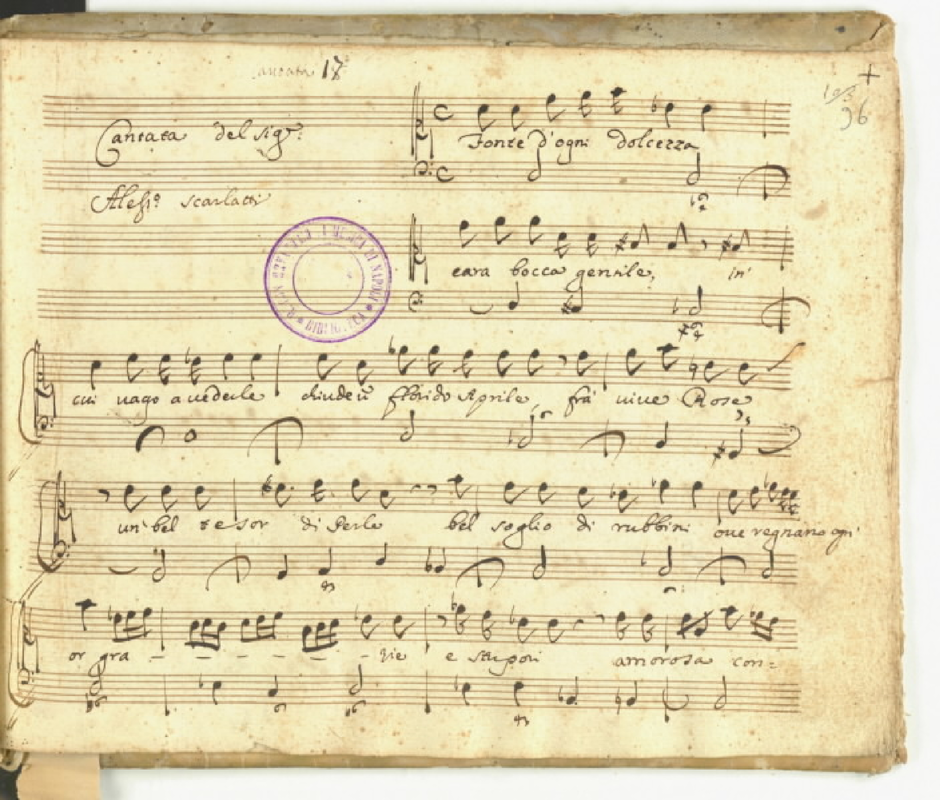 Cantata 18
+
103
96
Cantata del Sig.r
Aless.o Scarlatti
Fonte d'ogni dolcezza
cara bocca gentile, in
BIBLIOTECA
cui vago a vederle chiude un florido Aprile, frà vive Rose
un bel tesor di Perle bel soglio di rubbini ove regnano ogn'
or gra - - - - - - zie e stupori amorosa con=